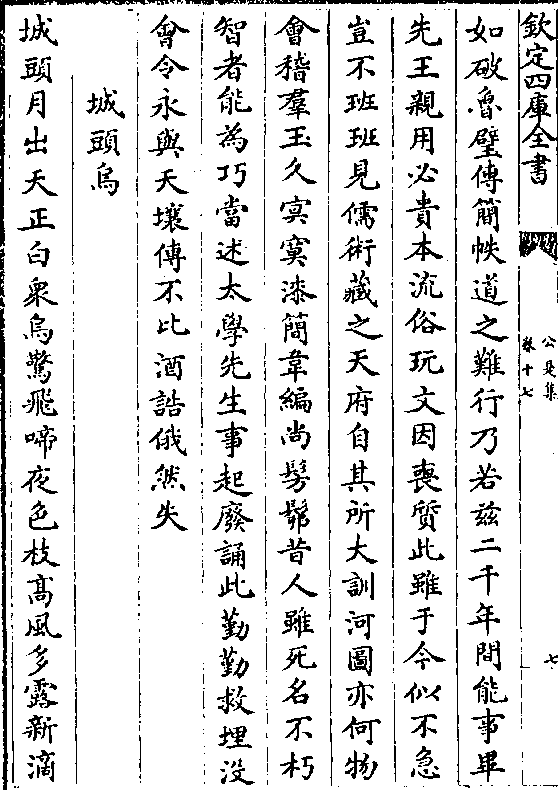 欽定四庫全書
公是集
卷十七
七
如破魯壁傳簡帙道之難行乃若兹二千年間能事畢
先王親用必貴本流俗玩文因喪質此雖于今似不急
豈不班班見儒術藏之天府自其所大訓河圖亦何物
會稽羣玉久寞寞漆簡韋編尚髣髴昔人雖死名不朽
智者能為巧當述太學先生事起廢誦此勤勤救埋没
會令永與天壤傳不比酒誥俄然失
城頭烏
城頭月出天正白衆烏驚飛啼夜色枝髙風多露新滴